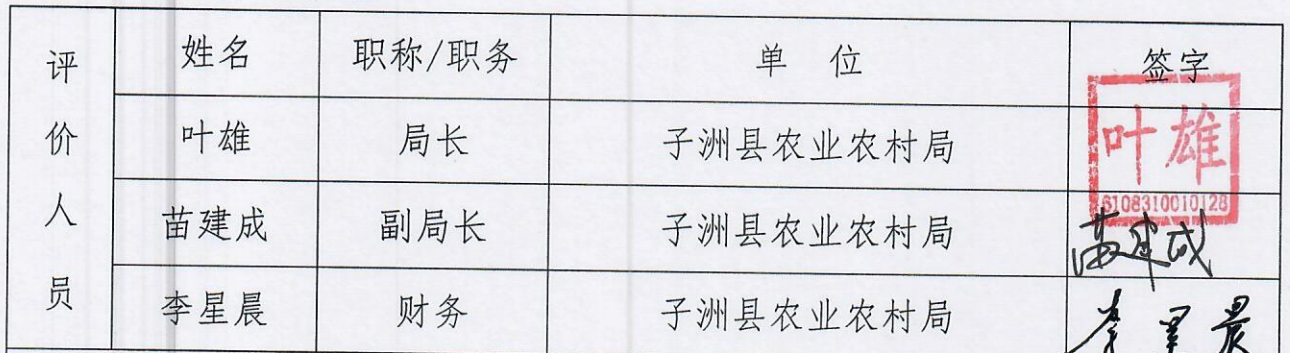 评价人员
姓名 职称/职务 单 位 签字
叶雄 局长 子洲县农业农村局 叶雄
6108310010128
苗建成 副局长 子洲县农业农村局 苗建成
李星晨 财务 子洲县农业农村局 李星晨